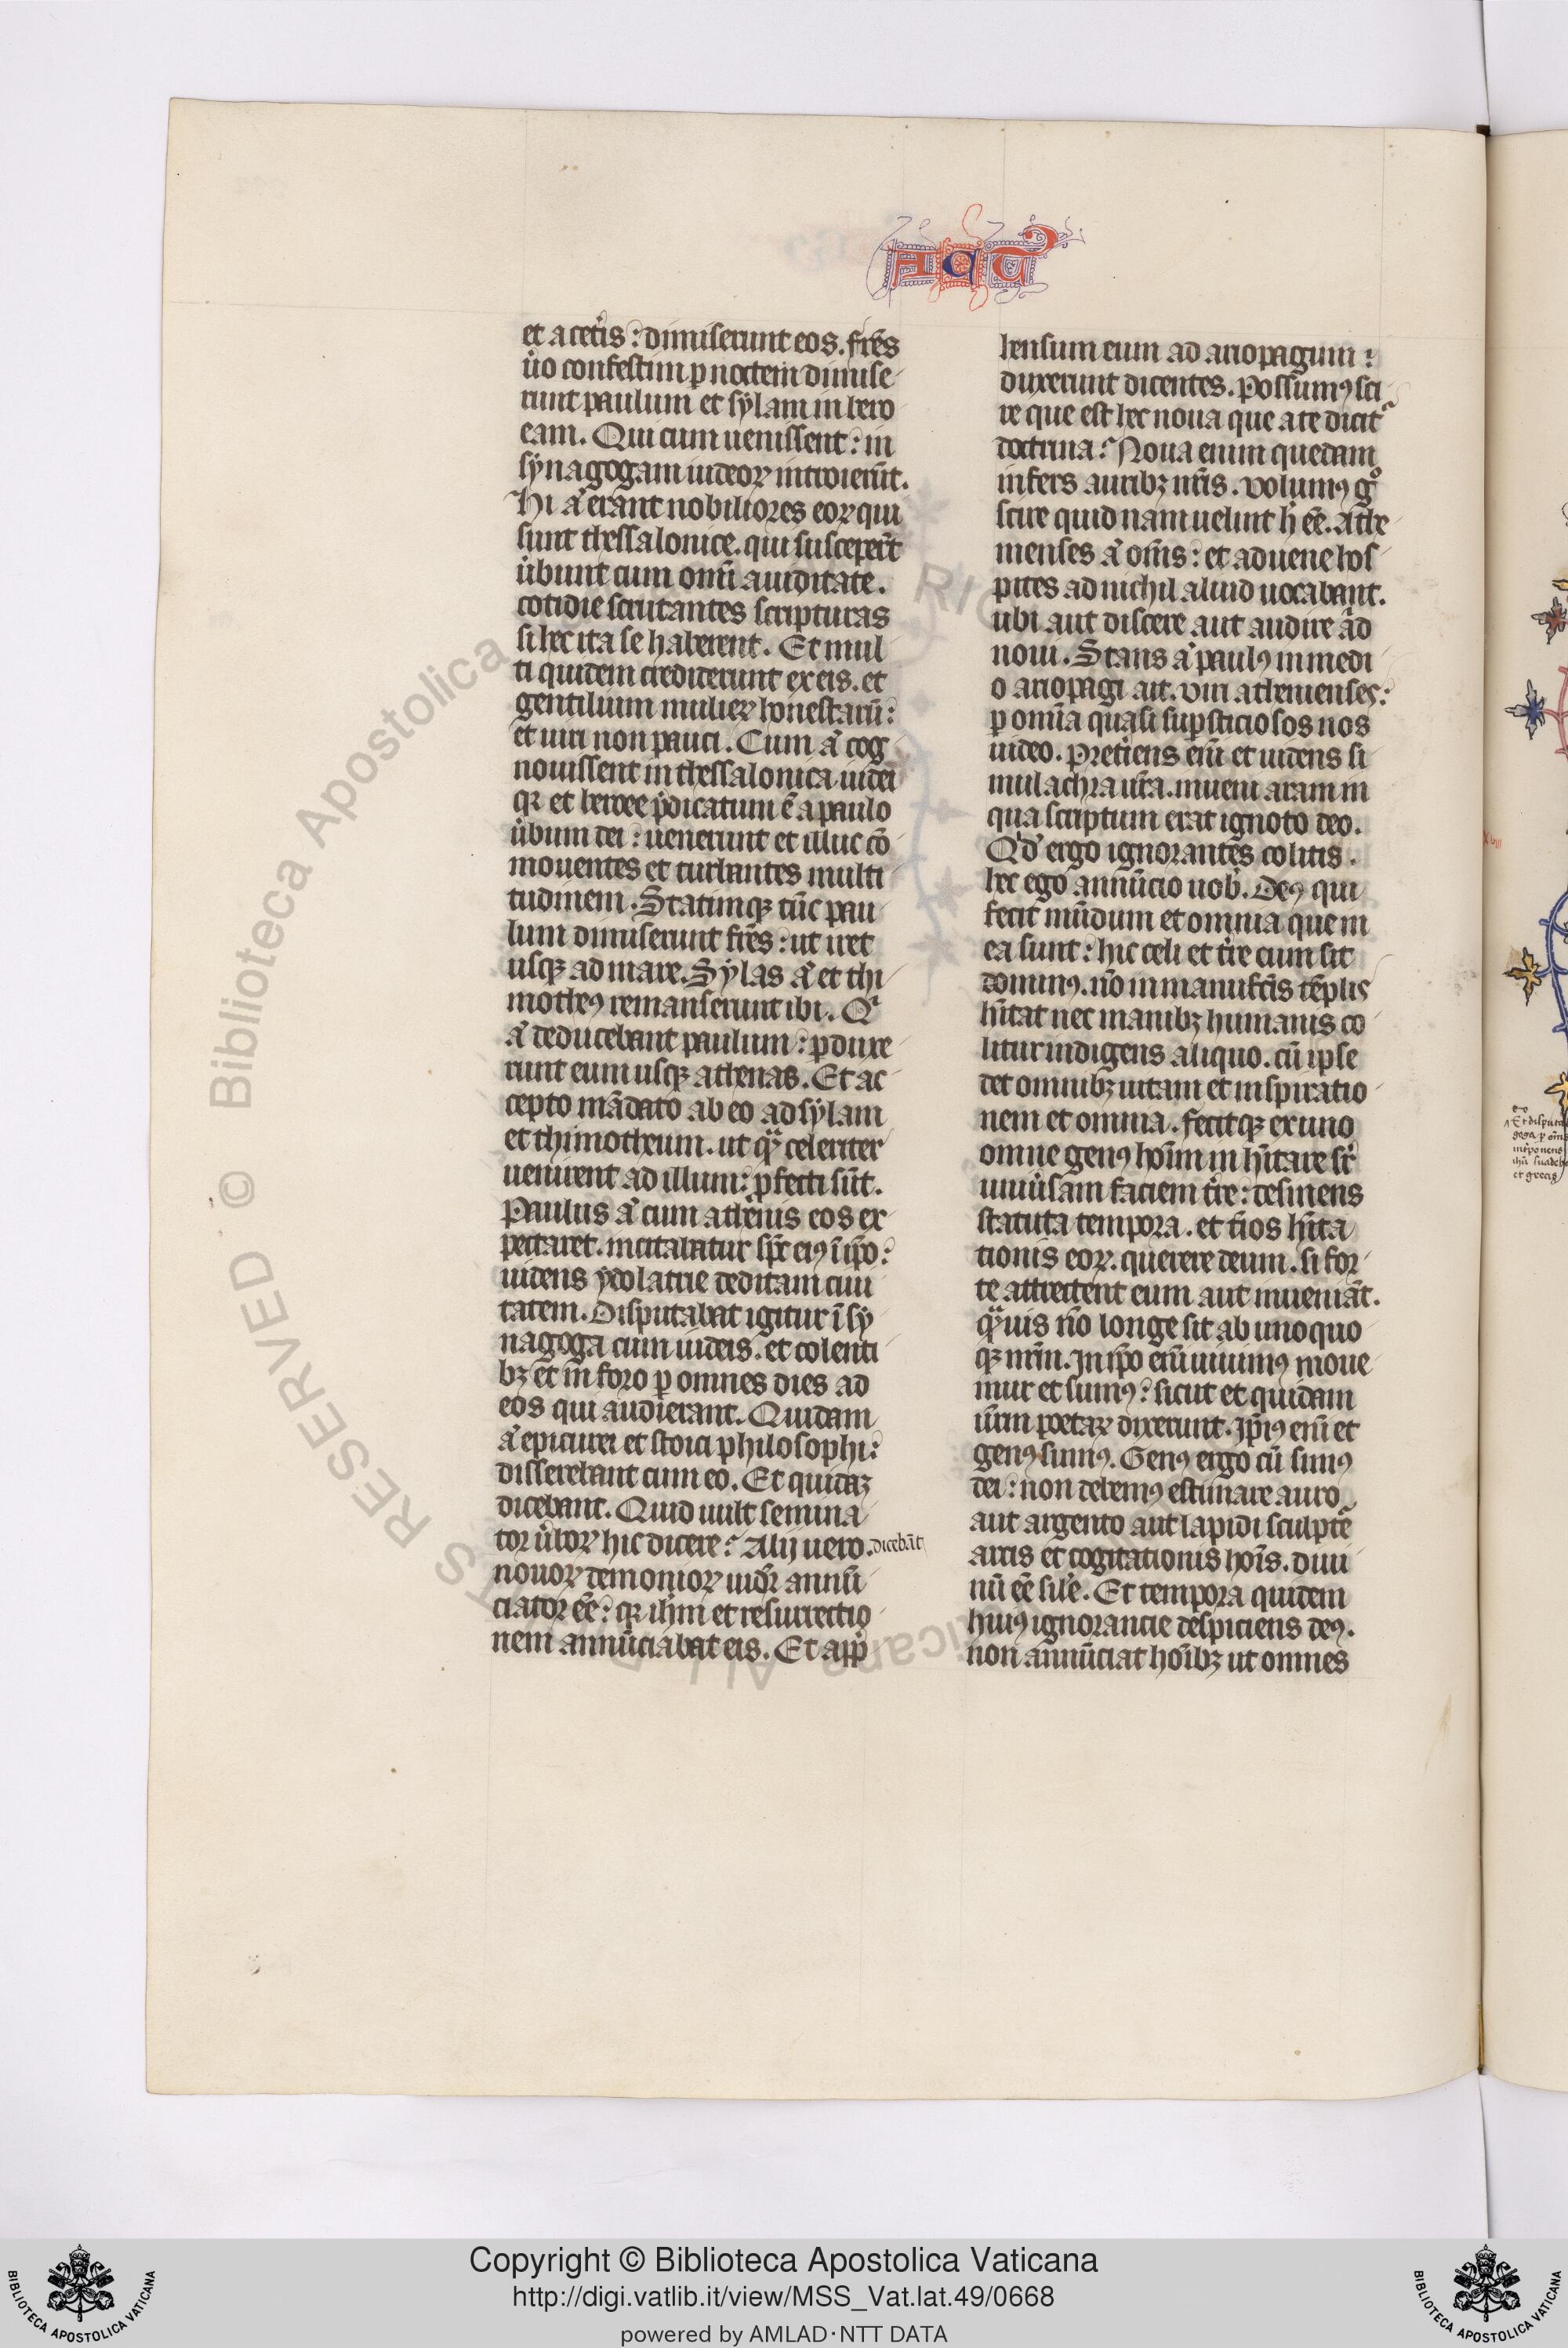 Act᷑
et a cet̾is : dimiserunt eos . fr̄es
u̾o confestim ꝑ noctem dimise
runt paulum et sylam in bero
eam . Qui cum uenissent : in
synagogam iudeoꝝ introierūt .
Hi a͛ erant nobiliores eoꝝ qui
sunt thessalonice . qui susceper̄t
u̾bum cum om̄i auiditate .
cotidie scrutantes scripturas
si hec ita se haberent . Et mul
ti quidem crediderunt ex eis . et
gentilium mulieꝝ honestarū :
et uiri non pauci . Cum a͛ cog
nouissent in thessalonica iudei
qꝛ et beroee p̾dicatum ē a paulo
u̾bum dei : uenerunt et illuc cō
mouentes et turbantes multi
tudinem . Statimqꝫ tūc pau
lum dimiserunt fr̄es : ut iret
usqꝫ ad mare . Sylas a͛ et thi
motheꝰ remanserunt ibi . Qͥ
a͛ deducebant paulum : ꝑduxe
runt eum usqꝫ athenas . Et ac
cepto mādato ab eo ad sylam
et thimotheum . ut qͣ celeriter
uenirent ad illum : ꝓfecti sūt .
Paulus a͛ cum athenis eos ex
pectaret . incitabatur sp̄c eiꝰ ī ip̄o :
uidens ydolatrie deditam ciui
tatem . Disputabat igitur ī sy
nagoga cum iudeis . et colenti
bꝫ et̄ in foro ꝑ omnes dies ad
eos qui audierant . Quidam
a͛ epicurei et stoici philosophi :
disserebant cum eo . Et quidaꝫ
dicebant . Quid uult semina
tor u̾boꝝ hic dicere ? Alij uero . dicebāt
nouoꝝ demonioꝝ uidr̄ annū
ciator eē : qꝛ ih̄m et resurrectio
nem annūciabat eis . Et app̾
hensum eum ad ariopagum :
duxerunt dicentes . Possumꝰ sci
re que est hec noua que a te dicit᷑
doctrina ? Noua enim quedam
infers auribꝫ nr̄is . volumꝰ gͦ
scire quid nam uelint h̾ eē . Athe
nienses a͛ om̄s : et aduene hos
pites ad nichil aliud uocabant .
ubi aut discere aut audire aͣd
noui . Stans a͛ paulꝰ in medi
o ariopagi ait . viri athenienses :
ꝑ om̄ia quasi suꝑsticiosos uos
uideo . Pret̾iens eni̅ et uidens si
mulachra ur̄a . inueni aram in
qua scriptum erat ignoto deo .
Qd̾ ergo ignorantes colitis .
hec ego annūcio uob̾ . Deꝰ qui
fecit mūdum et omnia que in
ea sunt : hic celi et t̾re cum sit
dominꝰ . nō in manufc̄is tēplis
hītat nec manibꝫ humanis co
litur indigens aliquo . cū ipse
det omnibꝫ uitam et inspiratio
nem et omnia . fecitqꝫ ex uno
omne genꝰ hoīm inhītare sr̾
uniu̾sam faciem t̾re : definens
statuta tempora . et t̾ios hīta
tionis eoꝝ . querere deum . si for
te attrectent eum aut inueniāt .
qͣuis nō longe sit ab uno quo
qꝫ nr̄m . In ip̄o enī uiuimꝰ moue
mur et sumꝰ : sicut et quidam
ur̄m poetaꝝ dixerunt . Ip̄iꝰ enī et
genꝰ sumꝰ . Genꝰ ergo cū simꝰ
dei : non debemꝰ estimare auro
aut argento aut lapidi sculpte̅
artis et cogitationis hoīs . diui
nū eē sil̾e . Et tempora quidem
huiꝰ ignorancie despiciens deꝰ .
non annūciat hoībꝫ ut omnes
Copyright © Biblioteca Apostolica Vaticana
http://digi.vatlib.it/view/MSS_Vat.lat.49/0668
powered by AMLAD·NTT DATA
BIBLIOTECA APOSTOLICA VATICANA
BIBLIOTECA APOSTOLICA VATICANA